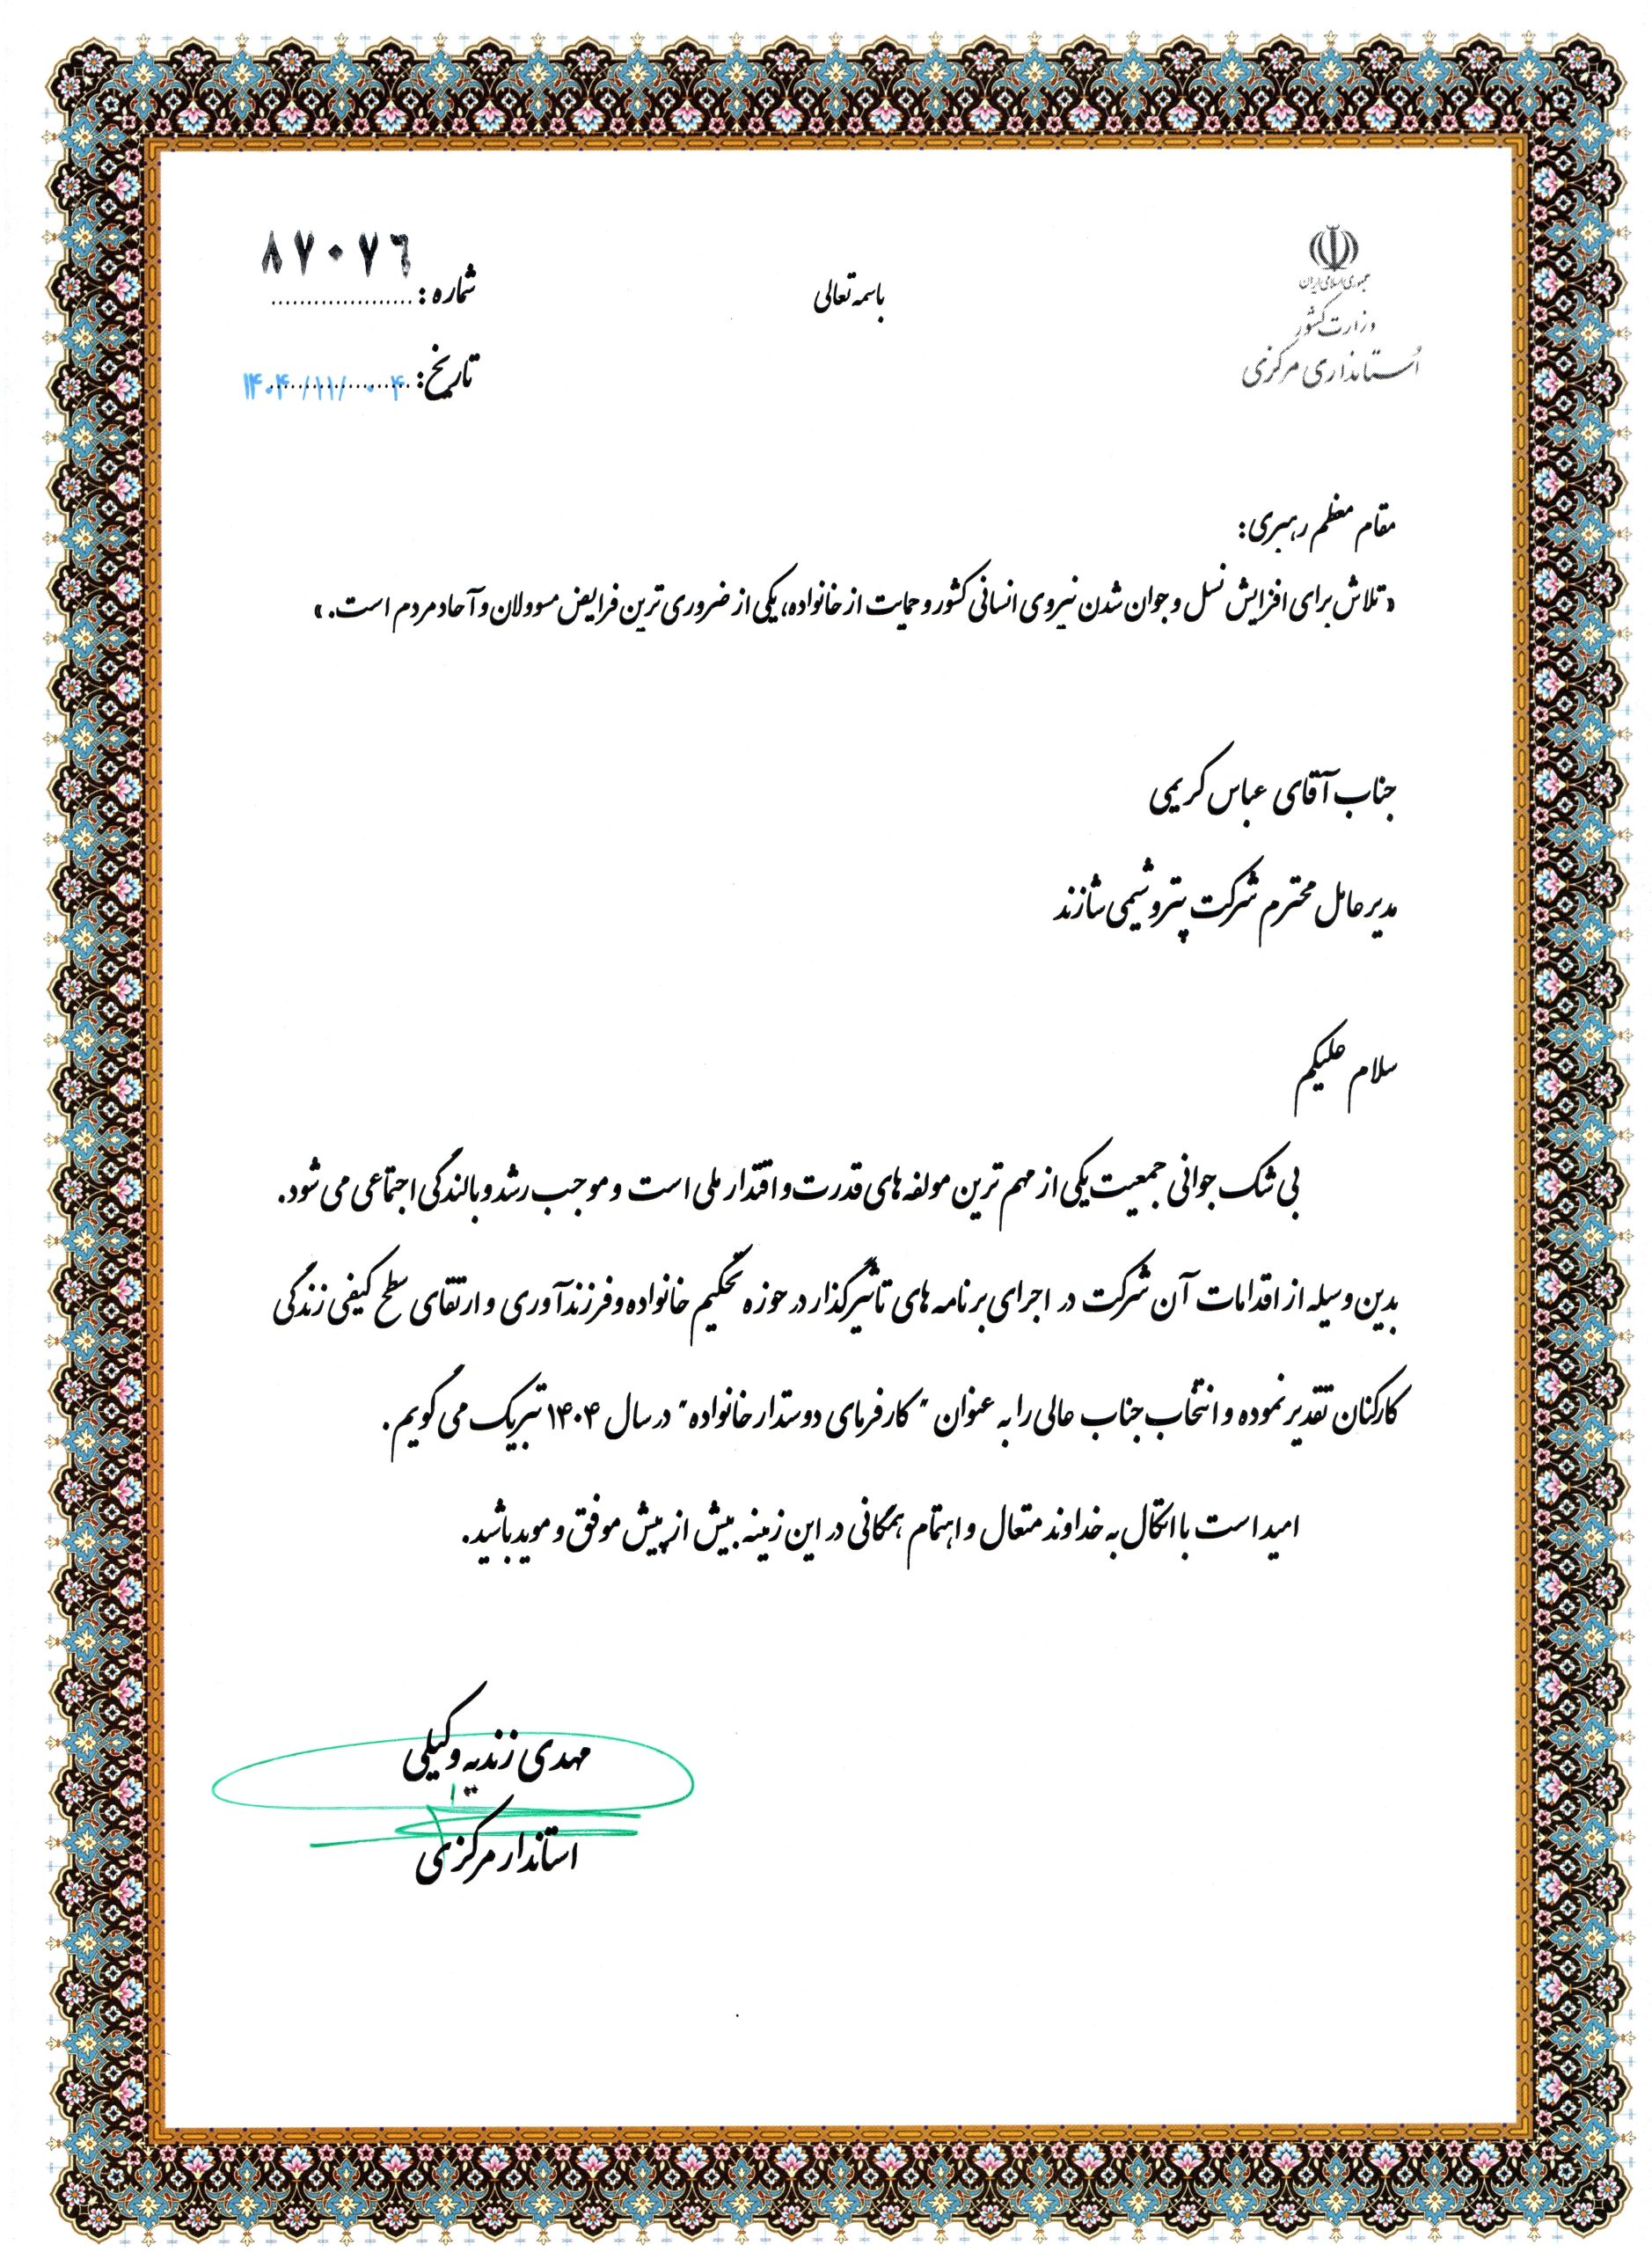 جمهوری اسلامی ایران
وزارت کشور
اُستانداری مرکزی
باسمه تعالی
شماره : ۸۷۰۷۶
تاریخ : ۱۴۰۴/۱۱/۰۴
مقام معظم رهبری:
«تلاش برای افزایش نسل و جوان شدن نیروی انسانی کشور و حمایت از خانواده، یکی از ضروری ترین فرایض مسوولان و آحاد مردم است.»
جناب آقای عباس کریمی
مدیرعامل محترم شرکت پتروشیمی شازند
سلام علیکم
بی شک جوانی جمعیت یکی از مهم ترین مولفه های قدرت و اقتدار ملی است و موجب رشد و بالندگی اجتماعی می شود.
بدین وسیله از اقدامات آن شرکت در اجرای برنامه های تأثیرگذار در حوزه تحکیم خانواده و فرزندآوری و ارتقای سطح کیفی زندگی
کارکنان تقدیر نموده و انتخاب جناب عالی را به عنوان "کارفرمای دوستدار خانواده" در سال ۱۴۰۴ تبریک می گویم.
امید است با اتکال به خداوند متعال و اهتمام همگانی در این زمینه بیش از پیش موفق و موید باشید.
مهدی زندیه وکیلی
استاندار مرکزی